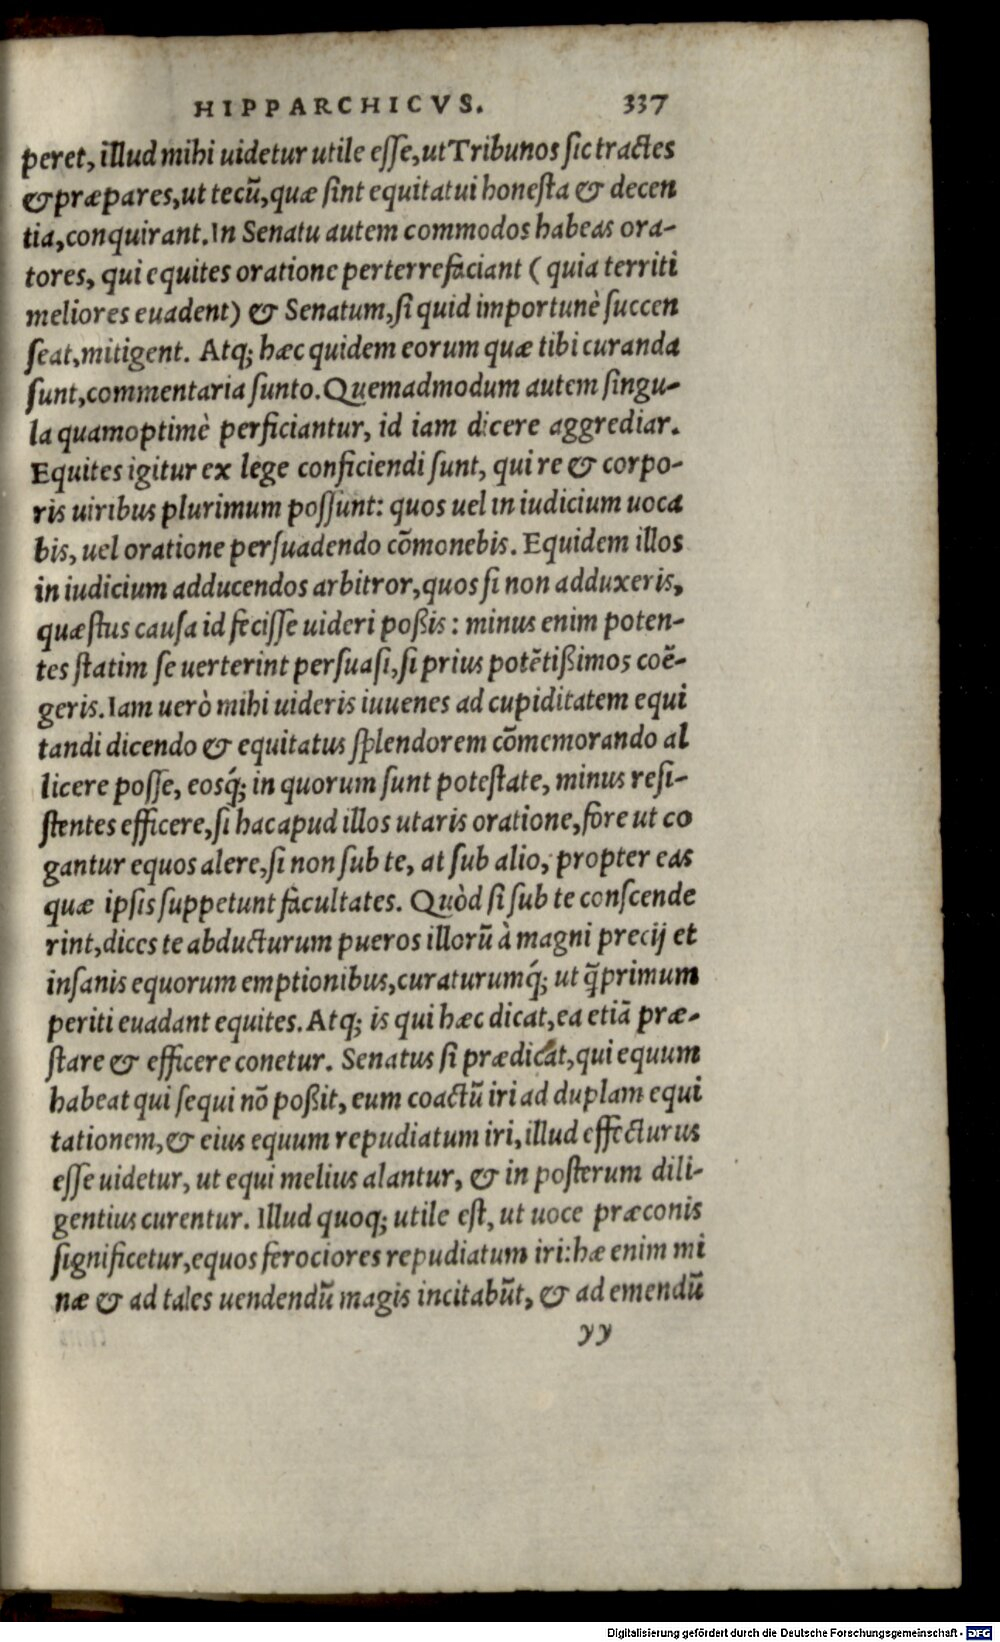 HIPPARCHICVS. 337
peret, illud mihi uidetur utile esse, ut Tribunos sic tractes
& præpares, ut tecū, quæ sint equitatui honesta & decen
tia, conquirant. In Senatu autem commodos habeas ora-
tores, qui equites oratione perterrefaciant ( quia territi
meliores euadent) & Senatum, si quid importunè succen
seat, mitigent. Atq; hæc quidem eorum quæ tibi curanda
sunt, commentaria sunto. Quemadmodum autem singu-
la quamoptimè perficiantur, id iam dicere aggrediar.
Equites igitur ex lege conficiendi sunt, qui re & corpo-
ris uiribus plurimum possunt: quos uel in iudicium uoca
bis, uel oratione persuadendo cōmonebis. Equidem illos
in iudicium adducendos arbitror, quos si non adduxeris,
quæstus causa id fecisse uideri poßis : minus enim poten-
tes statim se uerterint persuasi, si prius potētißimos coë-
geris. Iam uerò mihi uideris iuuenes ad cupiditatem equi
tandi dicendo & equitatus splendorem cōmemorando al
licere posse, eosq́; in quorum sunt potestate, minus resi-
stentes efficere, si hac apud illos utaris oratione, fore ut co
gantur equos alere, si non sub te, at sub alio, propter eas
quæ ipsis suppetunt facultates. Quòd si sub te conscende
rint, dices te abducturum pueros illorū à magni precij et
insanis equorum emptionibus, curaturumq́; ut q̄primum
periti euadant equites. Atq; is qui hæc dicat, ea etiā præ-
stare & efficere conetur. Senatus si prædicat, qui equum
habeat qui sequi nō poßit, eum coactū iri ad duplam equi
tationem, & eius equum repudiatum iri, illud effecturus
esse uidetur, ut equi melius alantur, & in posterum dili-
gentius curentur. Illud quoq; utile est, ut uoce præconis
significetur, equos ferociores repudiatum iri: hæ enim mi
næ & ad tales uendendū magis incitabūt, & ad emendū
yy
Digitalisierung gefördert durch die Deutsche Forschungsgemeinschaft - DFG